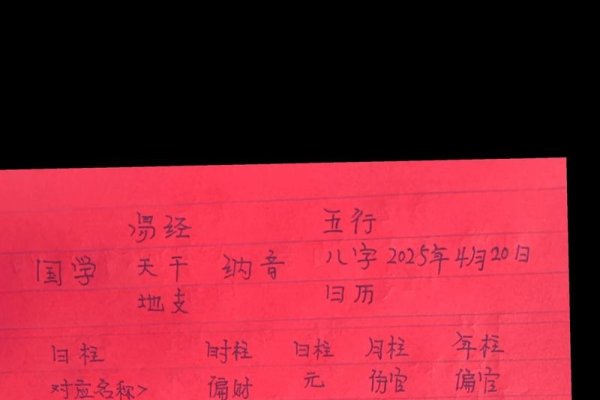 易经 五行
国学 天干 纳音 八字 2025年4月20日
地支 日历
日柱 时柱 日柱 月柱 年柱
对应名称> 偏财 元 份官 偏官